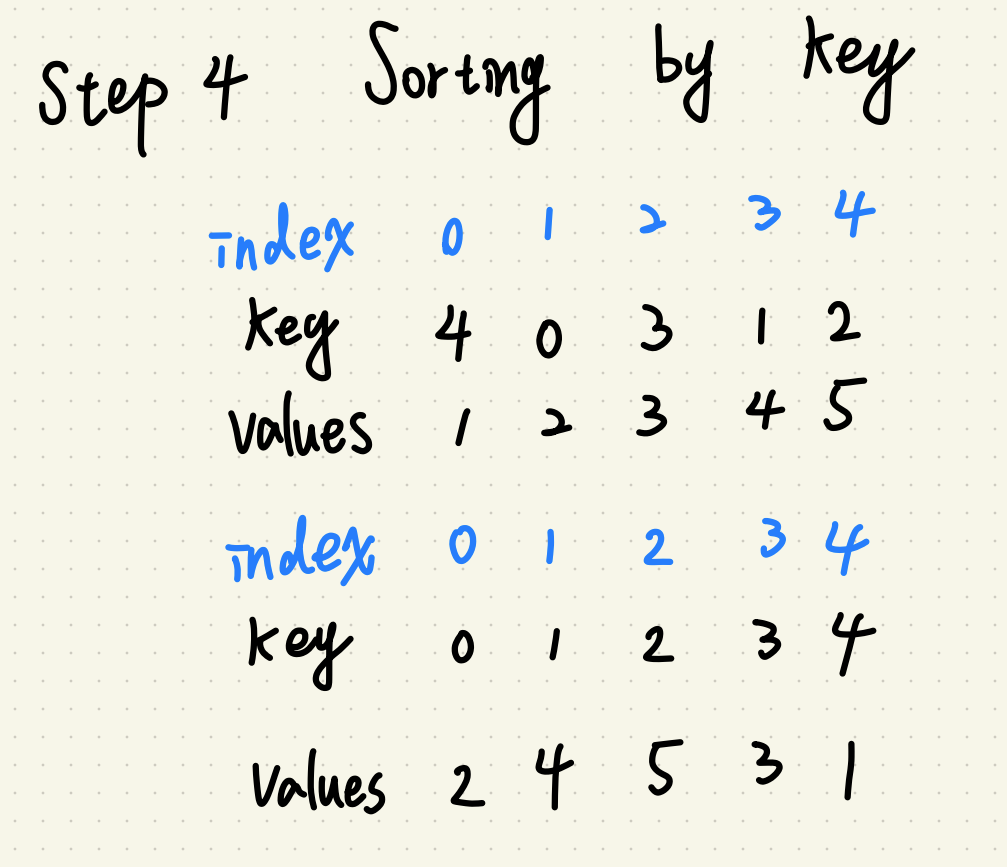 Step 4 Sorting by key
index 0 1 2 3 4
key 4 0 3 1 2
values 1 2 3 4 5
index 0 1 2 3 4
key 0 1 2 3 4
values 2 4 5 3 1